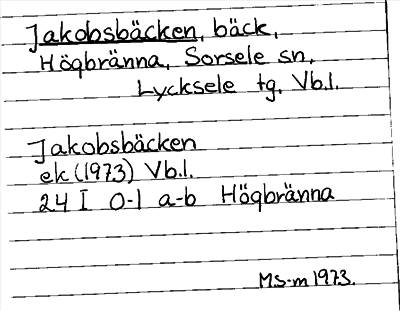 Jakobsbäcken, bäck,
Högbränna, Sorsele sn,
Lycksele tg, Vb.l.
Jakobsbäcken
ek (1973) Vb.l.
24 I 0-1 a-b Högbränna
MS-m 1973.